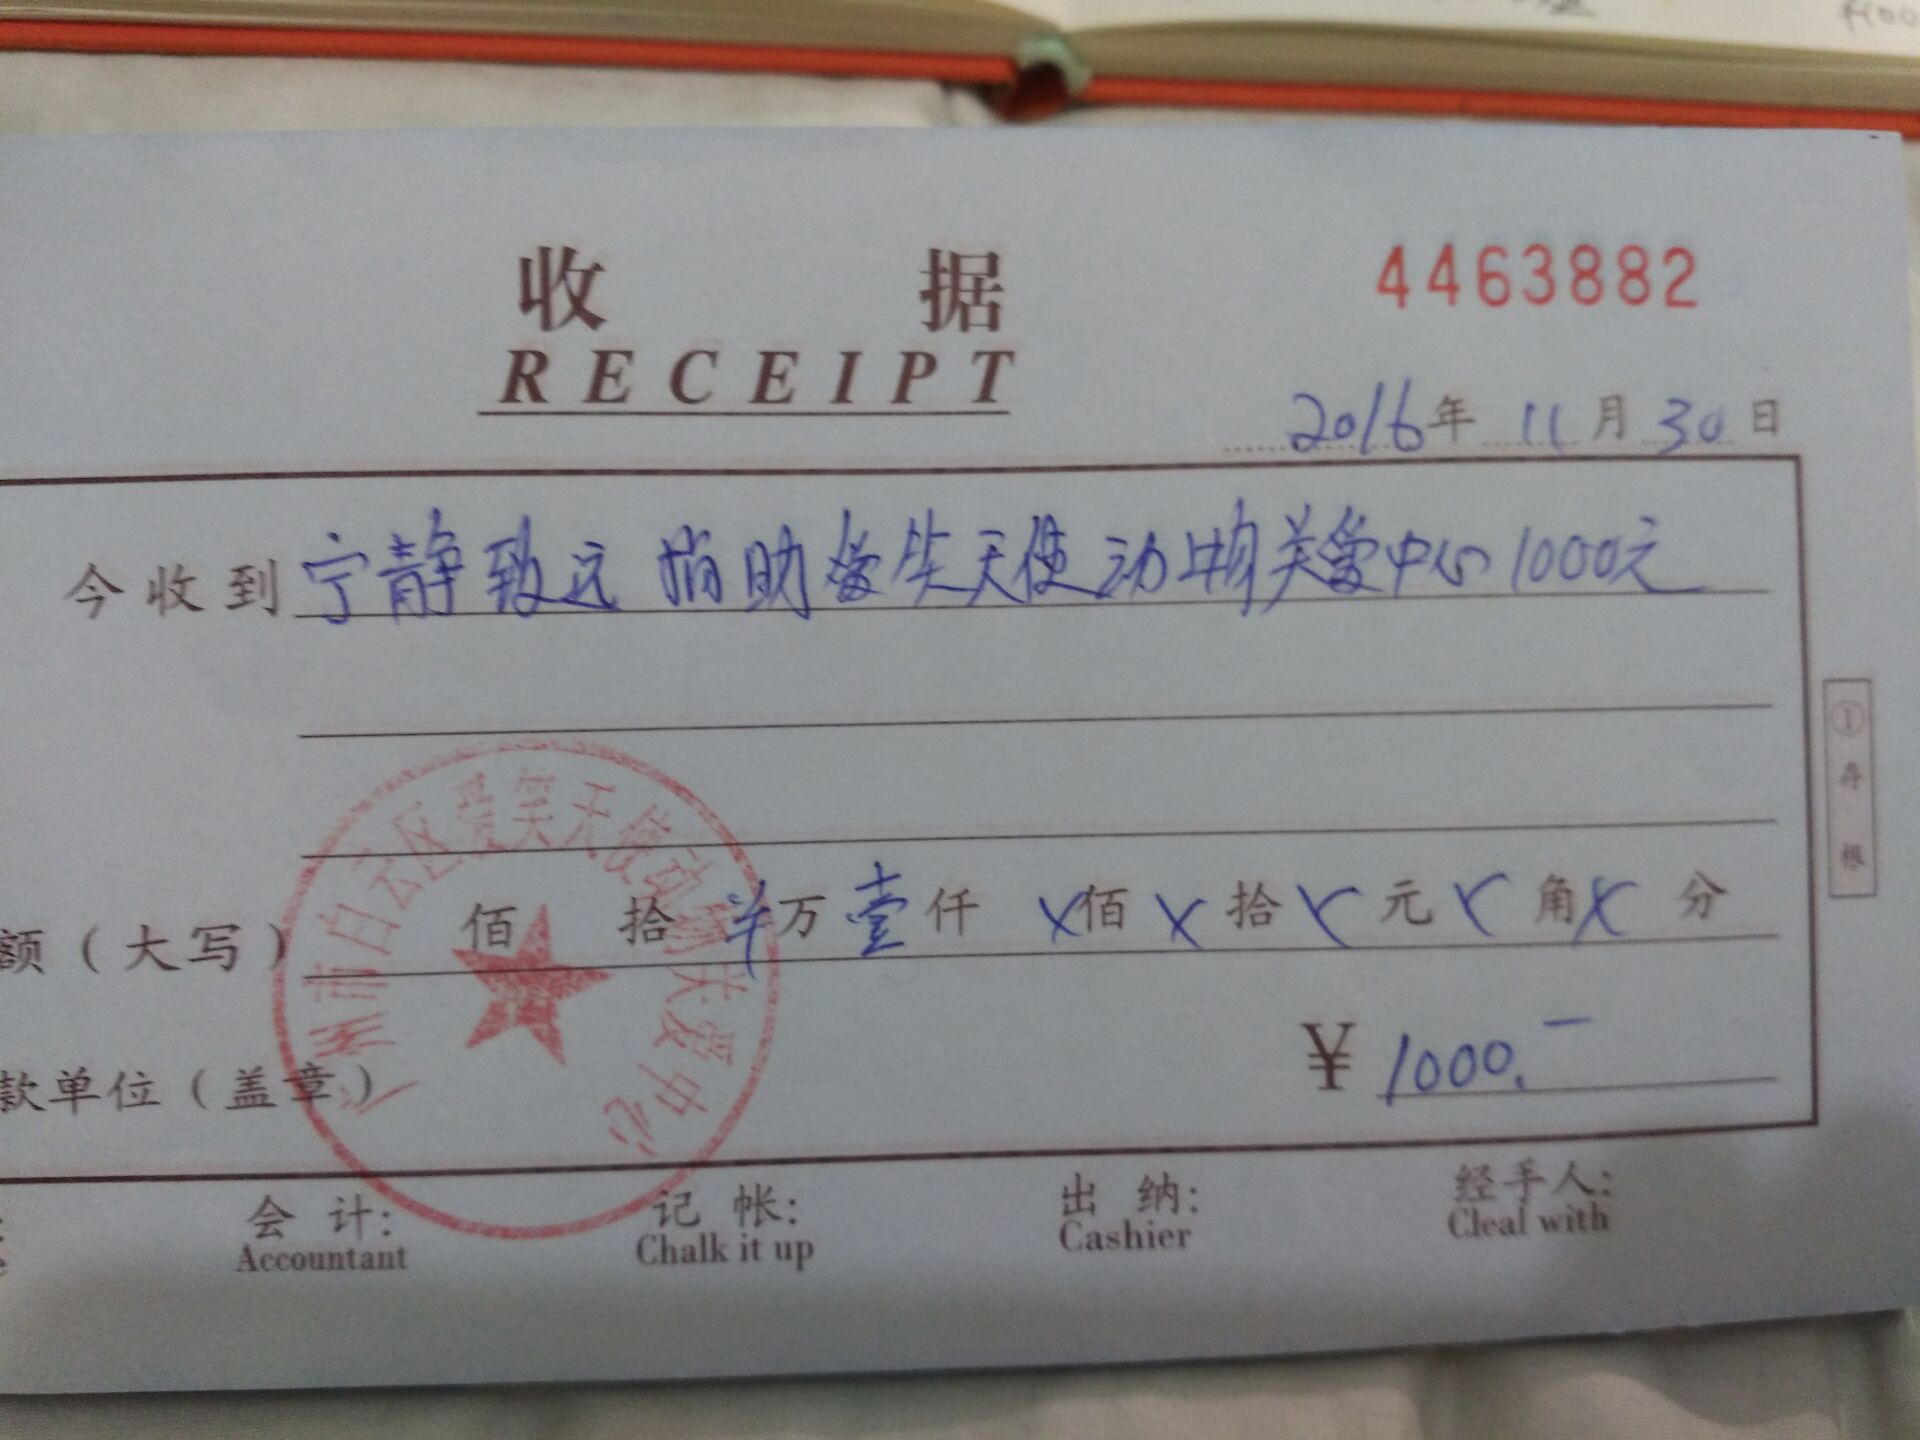 收 据
4463882
RECEIPT
2016年 11月 30日
今收到 宁静致远 捐助爱笑天使动物关爱中心1000元
①存根
额（大写） 佰 拾 万 壹仟 x佰 x拾 x元 x角 x分
款单位（盖章）
¥ 1000.—
广州市白云区爱笑天使动物关爱中心
会 计: 记 帐: 出 纳: 经手人:
Accountant Chalk it up Cashier Cleal with